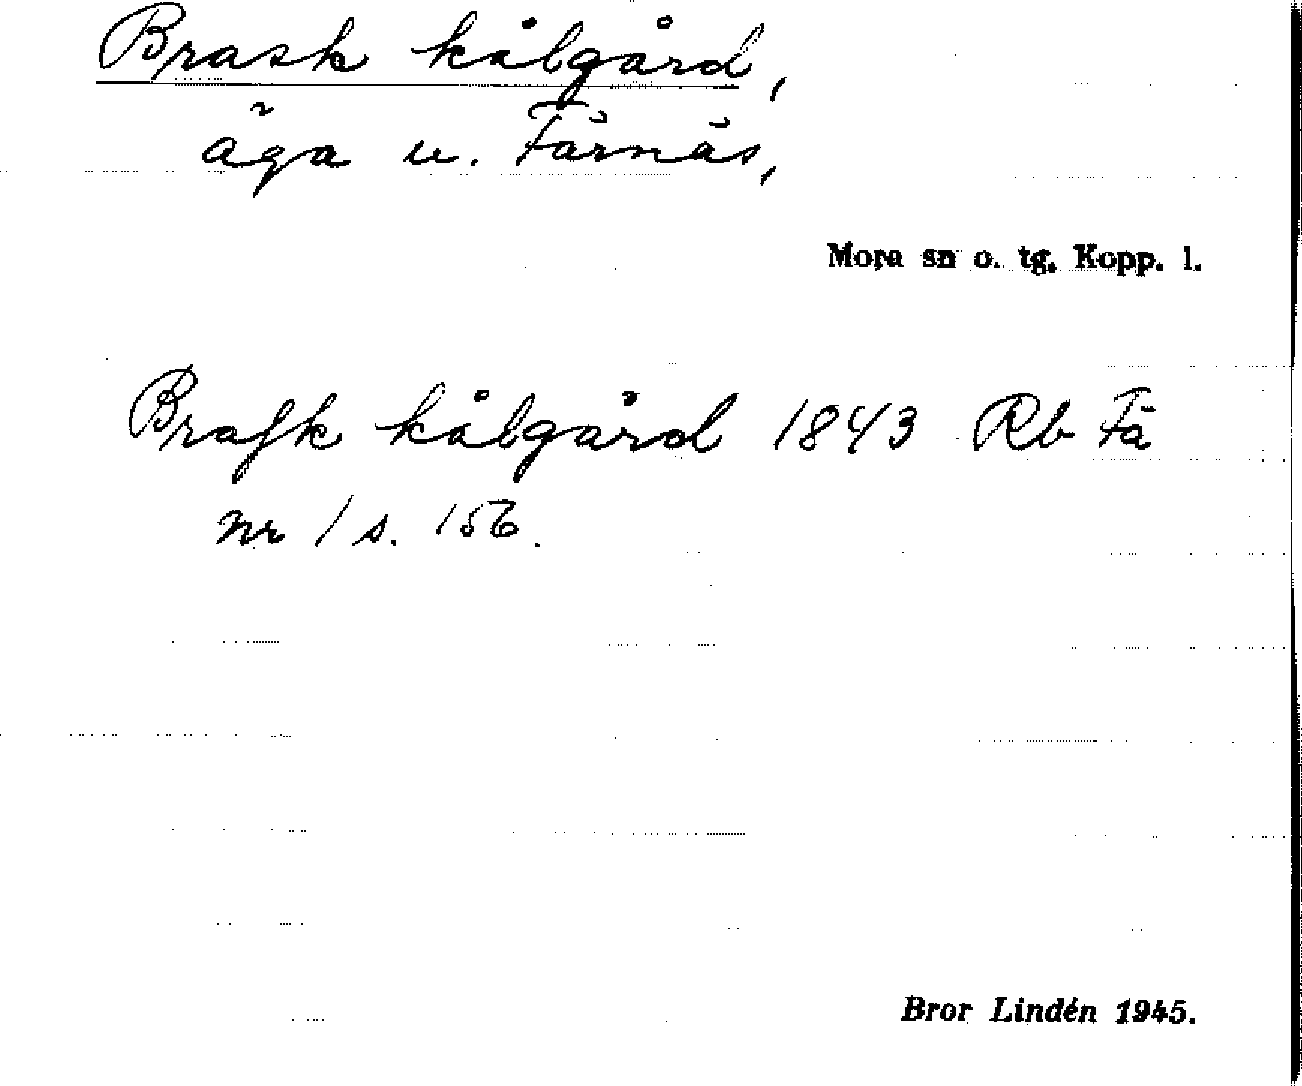 Brask kålgård,
äga u. Färnäs,
Mora sn o. tg. Kopp. l.
Braſk kålgård 1843 Rb Fä
nr 1 s. 156.
Bror Lindén 1945.